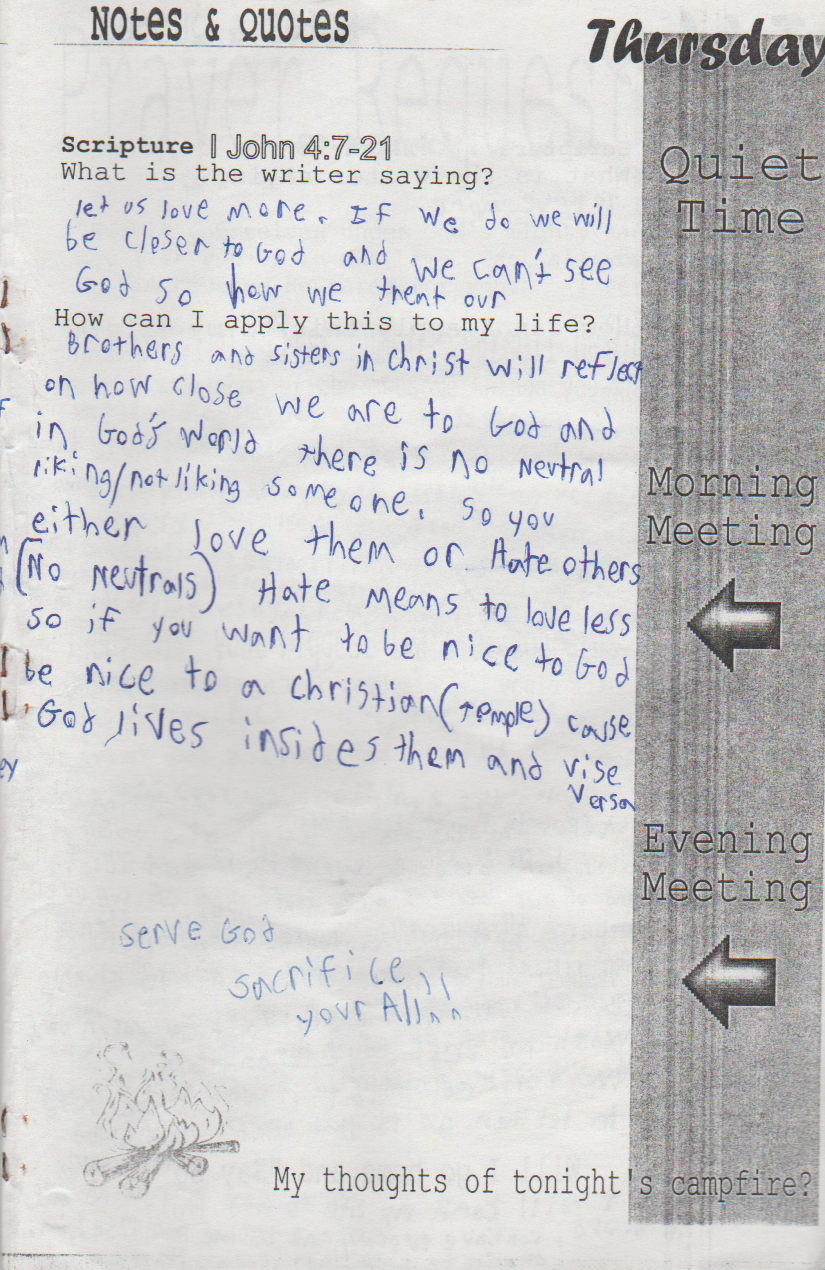 Notes & Quotes
Thursday
Scripture I John 4:7-21
What is the writer saying?
let us love more. If we do we will
be closer to God and we can't see
God so how we treat our
How can I apply this to my life?
Brothers and sisters in Christ will reflect
on how close we are to God and
in God's world there is no Neutral
liking/not liking someone. so you
either love them or Hate others
(No Neutrals) Hate means to love less
so if you want to be nice to God
be nice to a christian (temple) cause
God lives insides them and vise
versa
Quiet
Time
Morning
Meeting
Evening
Meeting
serve God
sacrifice
your All!!
My thoughts of tonight's campfire?